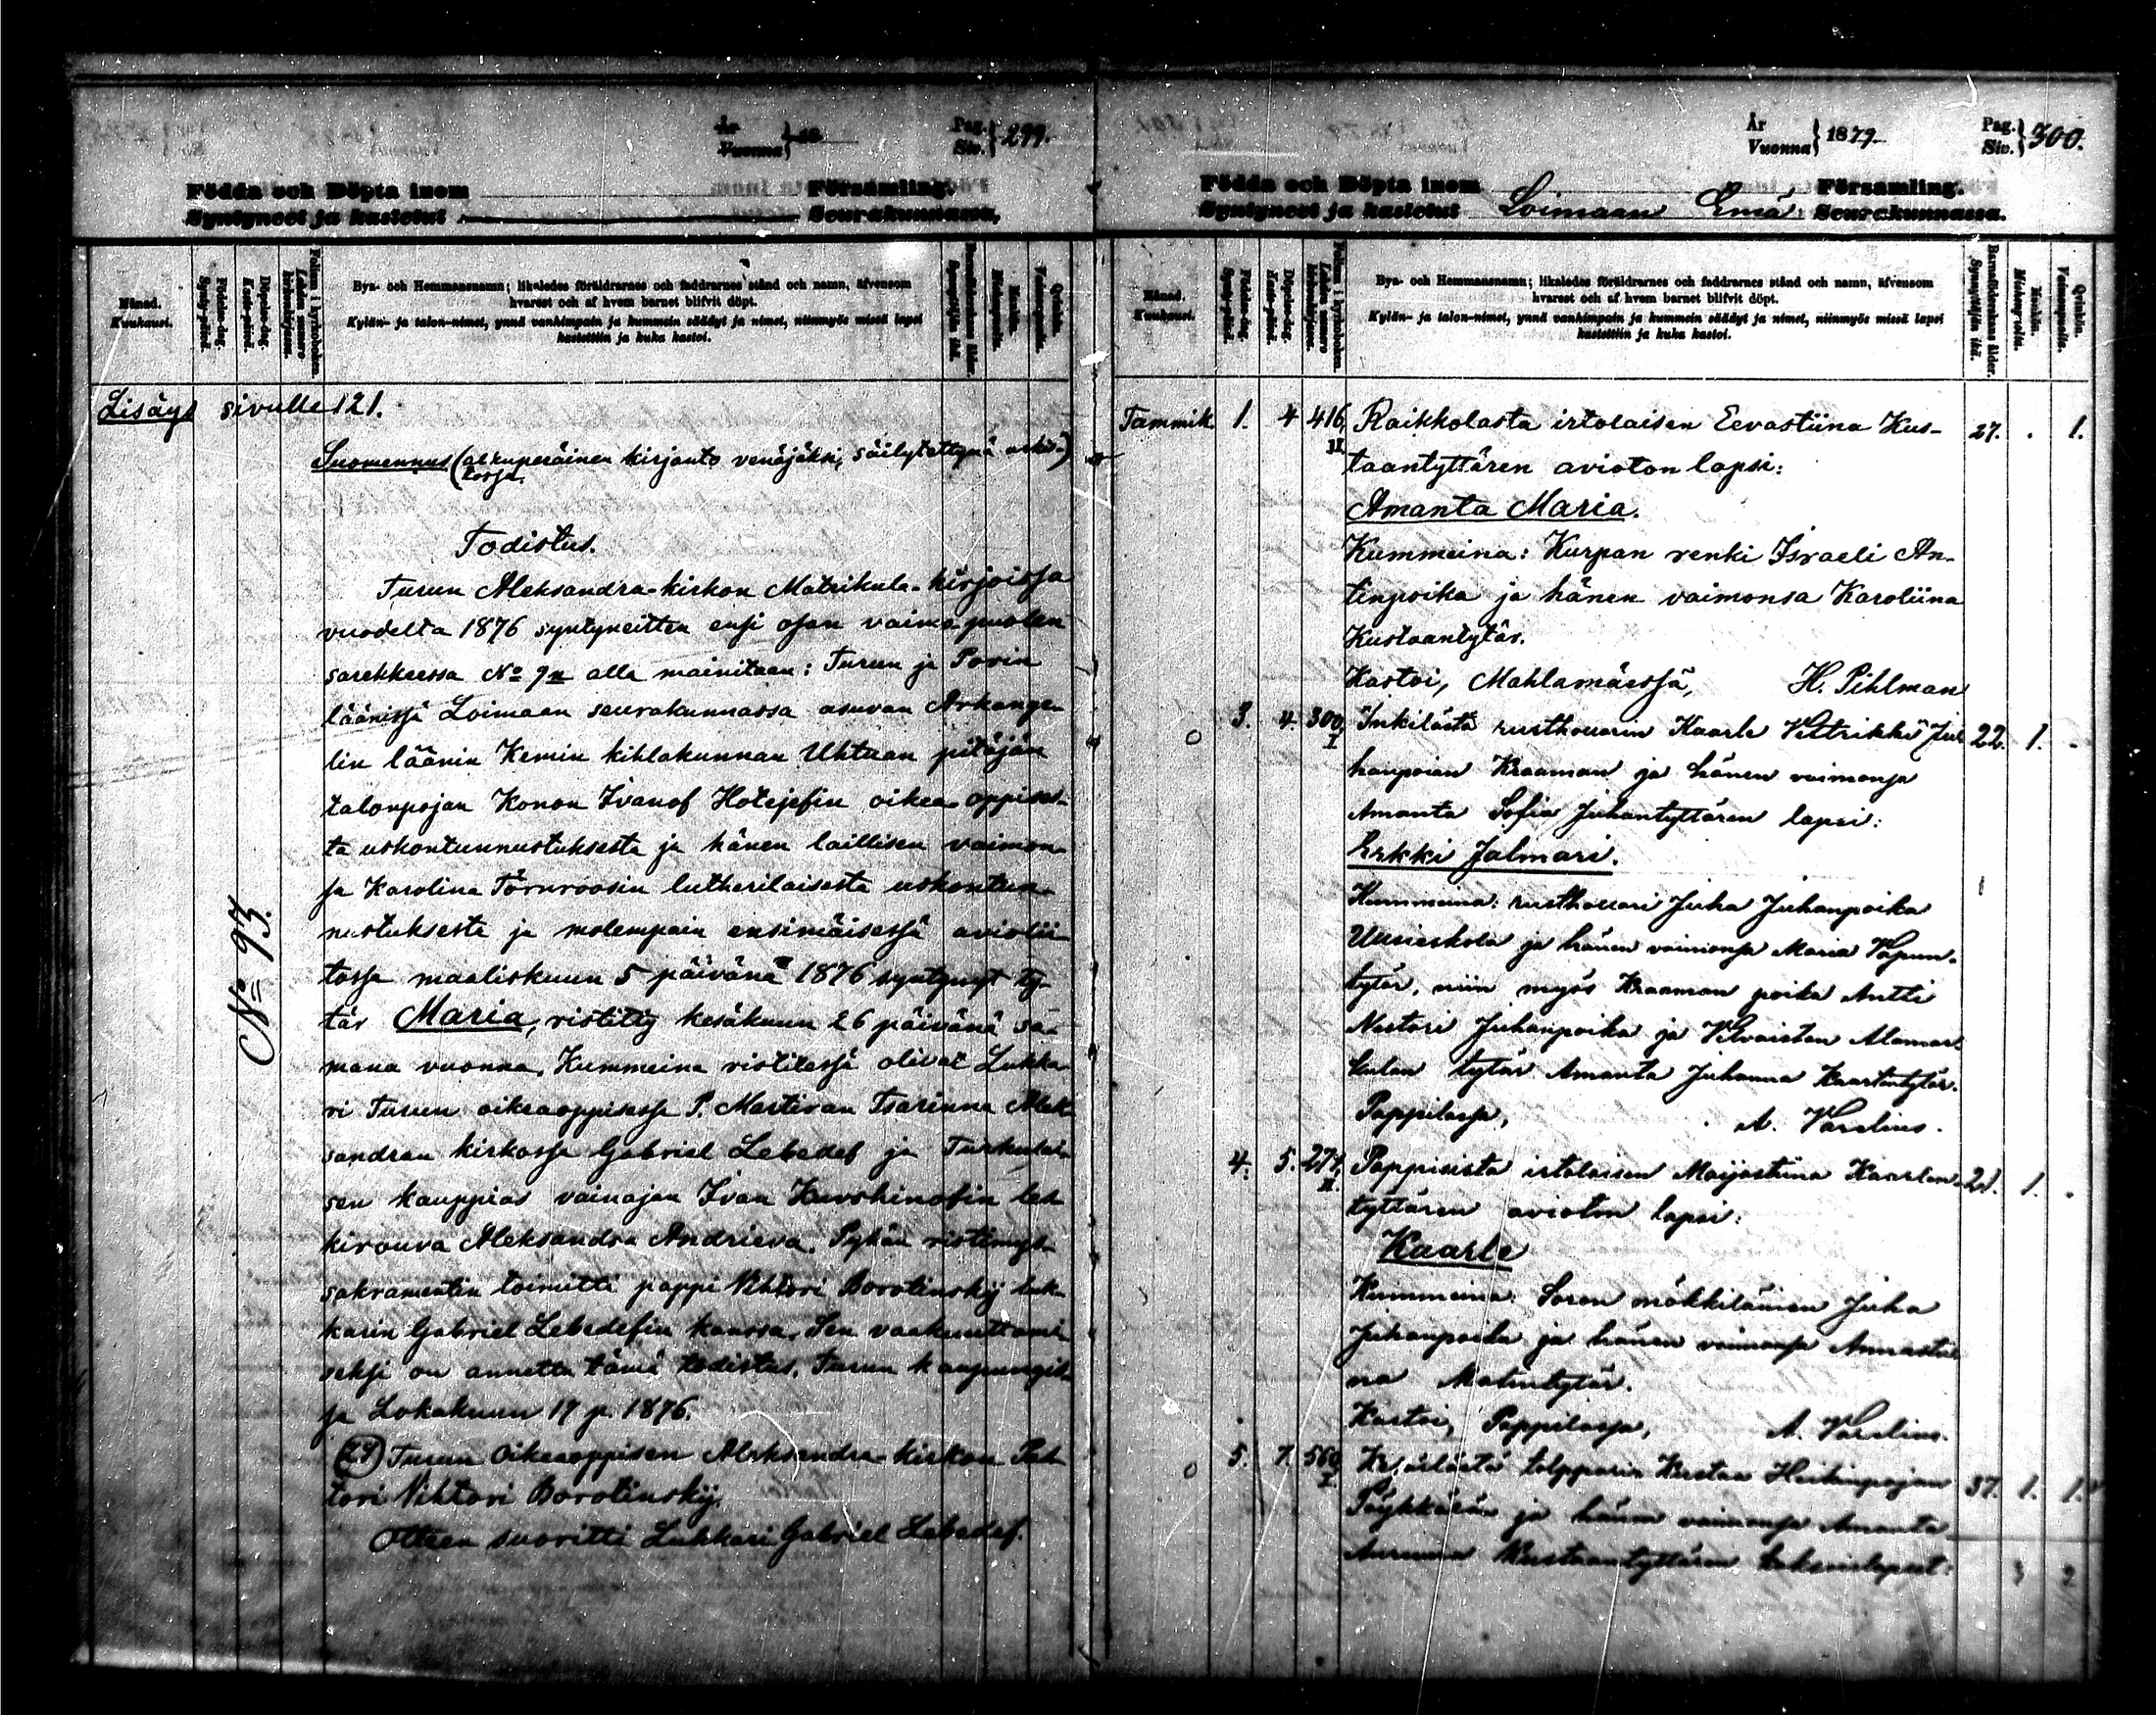 År
Vuonna } 18
Pag.
Siv. } 299.
Födda och Döpta inom Församling.
Syntyneet ja kastetut Seurakunnassa.
Månad.
Kuukausi.
Födelse-dag.
Synty-päivä.
Döpelse-dag.
Kaste-päivä.
Folium i kyrkoboken.
Lehden numero kirkonkirjassa.
Bya- och Hemmansnamn; likaledes föräldrarnes och faddrarnes stånd och namn, äfvensom
hvarest och af hvem barnet blifvit döpt.
Kylän- ja talon-nimet, ynnä vanhimpain ja kummein säädyt ja nimet, niinmyös missä lapsi
kastettiin ja kuka kastoi.
Barnaföderskans ålder.
Synnyttäjän ikä.
Mankön.
Miehenpuolia.
Qvinkön.
Vaimonpuolia.
Lisäys sivulle 121.
Suomennus (alkuperäinen kirjoitu venäjäksi, säilytettynä arkis-)
tossa.
Todistus.
Turun Aleksandra-kirkon Matrikula-kirjoissa
vuodelta 1876 syntyneitten ensi osan vaimopuolen
sarekkeessa No 9n alla mainitaan: Turun ja Porin
läänissä Loimaan seurakunnassa asuvan Arkange-
lin läänin Kemin kihlakunnan Uhtuan pitäjän
talonpojan Konon Ivanof Hotejefin oikea-oppises-
ta uskontunnustuksesta ja hänen laillisen vaimon-
sa Karolina Törnroosin lutherilaisesta uskontun-
nustuksesta ja molempain ensimäisessä aviolii-
tossa maaliskuun 5 päivänä 1876 syntynyt ty-
tär Maria, ristitty kesäkuun 26 päivänä sa-
mana vuonna. Kummeina ristitessä olivat Lukka-
ri Turun oikeaoppisessa P. Martiran Tsarinna Alek-
sandran kirkossa Gabriel Lebedef ja Turkulai-
sen kauppias vainajan Ivan Kuvshinofin les-
kirouva Aleksandra Andrieva. Pyhän ristimys-
sakramentin toimitti pappi Vihtori Borotinskij luk-
karin Gabriel Lebedefin kanssa. Sen vaakuuttami-
seksi on annettu tämä todistus. Turun kaupungis-
sa Lokakuun 19 p. 1876.
Turun Oikeaoppisen Aleksandra-kirkon Pas-
tori Vihtori Borotinskij.
Otteen suoritti Lukkari Gabriel Lebedef.
No 93.
År
Vuonna } 1879.
Pag.
Siv. } 300.
Födda och Döpta inom Församling.
Syntyneet ja kastetut Loimaan Emä Seurakunnassa.
Månad.
Kuukausi.
Födelse-dag.
Synty-päivä.
Döpelse-dag.
Kaste-päivä.
Folium i kyrkoboken.
Lehden numero kirkonkirjassa.
Bya- och Hemmansnamn; likaledes föräldrarnes och faddrarnes stånd och namn, äfvensom
hvarest och af hvem barnet blifvit döpt.
Kylän- ja talon-nimet, ynnä vanhimpain ja kummein säädyt ja nimet, niinmyös missä lapsi
kastettiin ja kuka kastoi.
Barnaföderskans ålder.
Synnyttäjän ikä.
Mankön.
Miehenpuolia.
Qvinkön.
Vaimonpuolia.
Tammik. 1. 4 416, II Raikkolasta irtolaisen Eevastiina Kus- 27. . 1.
taantyttären avioton lapsi:
Amanta Maria.
Kummeina: Kurpan renki Israeli An-
tinpoika ja hänen vaimonsa Karoliina
Kustaantytär.
Kastoi, Mahlamäessä, H. Pihlman
3. 4. 300, I Inkilästä rusthouarin Kaarle Vettrikki Ju- 22. 1. .
hanpoian Kraaman ja hänen vaimonsa
Amanta Sofia Juhantyttären lapsi:
Erkki Jalmari.
Kummeina: rusthouari Juha Juhanpoika
Uusieskola ja hänen vaimonsa Maria
tytär, niin myös Kraaman poika Antti
Nestori Juhanpoika ja
tytär Amanta Juhanna Kaarlentytär.
Pappilassa, A. Varelius.
4. 5. 274, II. Pappisista irtolaisen Maijastiina Kaarlen- 21. 1. .
tyttären avioton lapsi:
Kaarle
Kummeina: Soron mökkiläinen Juha
Juhanpoika ja hänen vaimonsa Annastii-
na Matintytär.
Kastoi, Pappilassa, A. Varelius.
5. 7. 560, I tolpparin Kustaa Heikinpojan 37. 1. 1.
ja hänen vaimonsa Amanta
Kustaantyttären kaksoislapset:
3 2